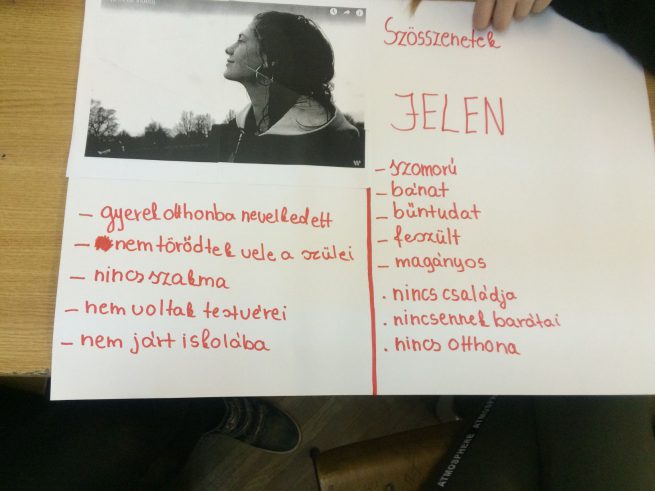 Szösszenetek
JELEN
- szomorú
- bánat
- bűntudat
- feszült
- magányos
. nincs családja
. nincsennek barátai
. nincs otthona
- gyerekotthonba nevelkedett
- nem törődtek vele a szülei
- nincs szakma
- nem voltak testvérei
- nem járt iskolába
ATMOSPHERE ATMOSPHERE